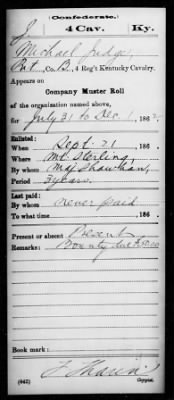 (Confederate.)
J 4 Cav. Ky.
Michael Judge,
Pvt, Co. B, 4 Reg't Kentucky Cavalry.
Appears on
Company Muster Roll
of the organization named above,
for July 31 to Dec 1, 186
Enlisted:
When Sept. 21, 186
Where Mt. Sterling,
By whom Maj Shawhan,
Period 3 years.
Last paid:
By whom never paid
To what time , 186 .
Present or absent Present
Remarks: Bounty due
Book mark:
(642) Copyist.